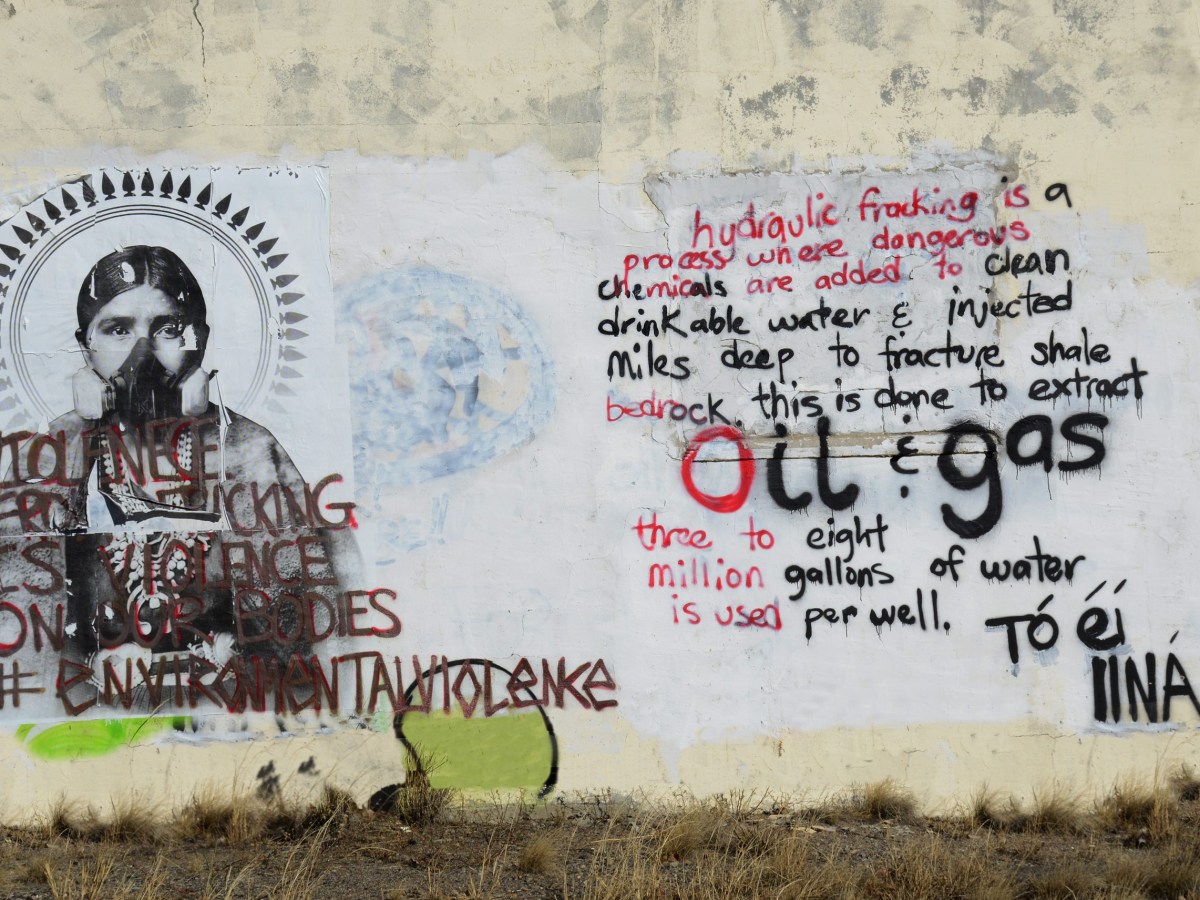 FRACKING
IS VIOLENCE
ON OUR BODIES
# ENVIRONMENTALVIOLENCE
hydraulic fracking is a
process where dangerous
chemicals are added to clean
drinkable water & injected
miles deep to fracture shale
bedrock. this is done to extract
oil & gas
three to eight
million gallons of water
is used per well.
TÓ éí
IINÁ